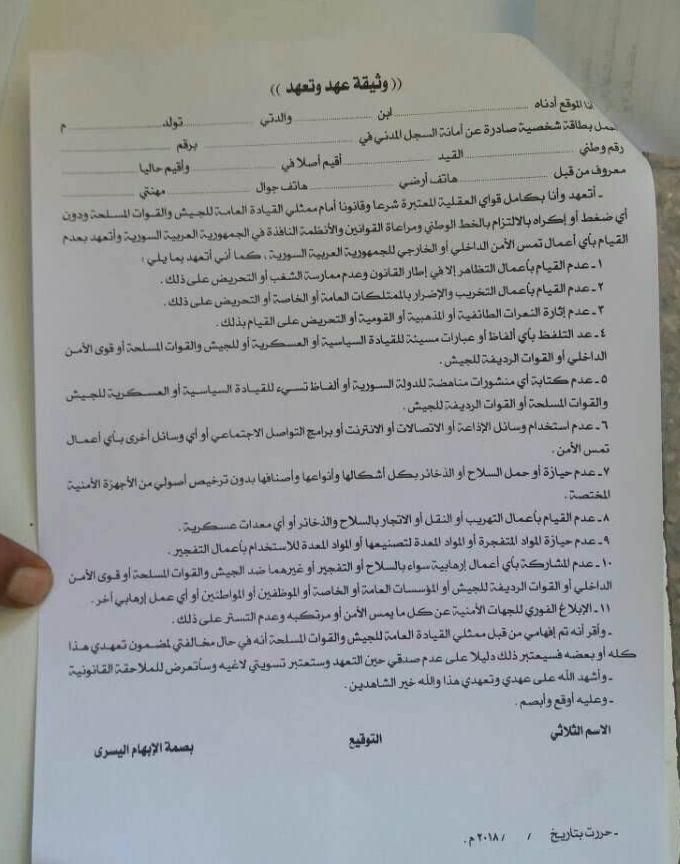 (( وثيقة عهد وتعهد ))
نا الموقع أدناه .......... ابن .......... والدتي .......... تولد .......... م
حمل بطاقة شخصية صادرة عن أمانة السجل المدني في .......... برقم ..........
رقم وطني .......... القيد .......... أقيم أصلا في .......... وأقيم حاليا ..........
معروف من قبل .......... هاتف أرضي .......... هاتف جوال .......... مهنتي ..........
ـ أتعهد وأنا بكامل قواي العقلية المعتبرة شرعا وقانونا أمام ممثلي القيادة العامة للجيش والقوات المسلحة ودون
أي ضغط أو إكراه بالالتزام بالخط الوطني ومراعاة القوانين والأنظمة النافذة في الجمهورية العربية السورية وأتعهد بعدم
القيام بأي أعمال تمس الأمن الداخلي أو الخارجي للجمهورية العربية السورية ، كما أني أتعهد بما يلي :
١ ـ عدم القيام بأعمال التظاهر إلا في إطار القانون وعدم ممارسة الشغب أو التحريض على ذلك .
٢ ـ عدم القيام بأعمال التخريب والإضرار بالممتلكات العامة أو الخاصة أو التحريض على ذلك .
٣ ـ عدم إثارة النعرات الطائفية أو المذهبية أو القومية أو التحريض على القيام بذلك .
٤ ـ عد التلفظ بأي ألفاظ أو عبارات مسيئة للقيادة السياسية أو العسكرية أو للجيش والقوات المسلحة أو قوى الأمن
الداخلي أو القوات الرديفة للجيش .
٥ ـ عدم كتابة أي منشورات مناهضة للدولة السورية أو ألفاظ تسيء للقيادة السياسية أو العسكرية للجيش
والقوات المسلحة أو القوات الرديفة للجيش .
٦ ـ عدم استخدام وسائل الإذاعة أو الاتصالات أو الانترنت أو برامج التواصل الاجتماعي أو أي وسائل أخرى بأي أعمال
تمس الأمن .
٧ ـ عدم حيازة أو حمل السلاح أو الذخائر بكل أشكالها وأنواعها وأصنافها بدون ترخيص أصولي من الأجهزة الأمنية
المختصة .
٨ ـ عدم القيام بأعمال التهريب أو النقل أو الاتجار بالسلاح والذخائر أو أي معدات عسكرية .
٩ ـ عدم حيازة المواد المتفجرة أو المواد المعدة لتصنيعها أو المواد المعدة للاستخدام بأعمال التفجير .
١٠ ـ عدم المشاركة بأي أعمال إرهابية سواء بالسلاح أو التفجير أو غيرهما ضد الجيش والقوات المسلحة أو قوى الأمن
الداخلي أو القوات الرديفة للجيش أو المؤسسات العامة أو الخاصة أو الموظفين أو المواطنين أو أي عمل إرهابي أخر .
١١ ـ الإبلاغ الفوري للجهات الأمنية عن كل ما يمس الأمن أو مرتكبه وعدم التستر على ذلك .
ـ وأقر أنه تم إفهامي من قبل ممثلي القيادة العامة للجيش والقوات المسلحة أنه في حال مخالفتي لمضمون تعهدي هذا
كله أو بعضه فسيعتبر ذلك دليلا على عدم صدقي حين التعهد وستعتبر تسويتي لاغيه وسأتعرض للملاحقة القانونية
ـ وأشهد الله على عهدي وتعهدي هذا والله خير الشاهدين .
ـ وعليه أوقع وأبصم .
الاسم الثلاثي التوقيع بصمة الإبهام اليسرى
ـ حررت بتاريخ / / ٢٠١٨ م .